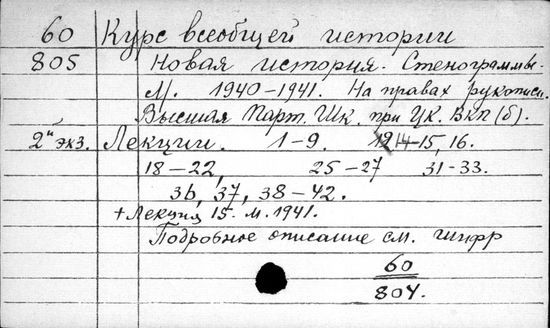 60 Курс всеобщей истории
805 Новая история. Стенограммы.
М. 1940-1941. На правах рукописи.
Высшая Парт. Шк. при ЦК. ВКП(б).
2й экз. Лекции. 1-9. 14-15, 16.
18-22, 25-27 31-33.
36, 37, 38-42.
+ Лекция 15. М. 1941.
Подробное описание см. шифр
60
804.